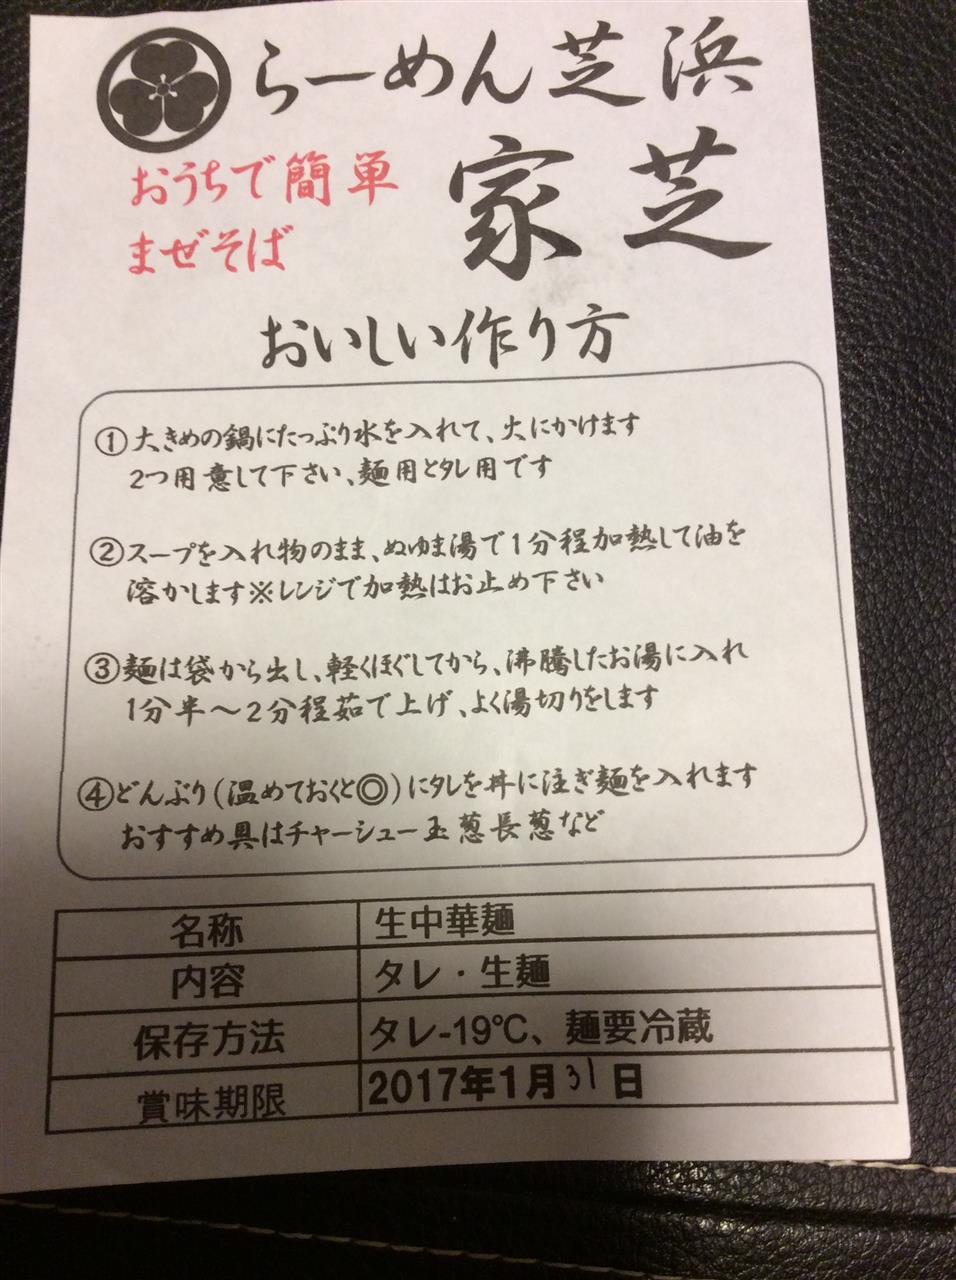 らーめん芝浜
おうちで簡単
まぜそば
家芝
おいしい作り方
①大きめの鍋にたっぷり水を入れて、火にかけます
2つ用意して下さい、麺用とタレ用です
②スープを入れ物のまま、ぬゆま湯で1分程加熱して油を
溶かします※レンジで加熱はお止め下さい
③麺は袋から出し、軽くほぐしてから、沸騰したお湯に入れ
1分半～2分程茹で上げ、よく湯切りをします
④どんぶり(温めておくと◎)にタレを丼に注ぎ麺を入れます
おすすめ具はチャーシュー玉葱長葱など
名称 生中華麺
内容 タレ・生麺
保存方法 タレ-19℃、麺要冷蔵
賞味期限 2017年1月31日